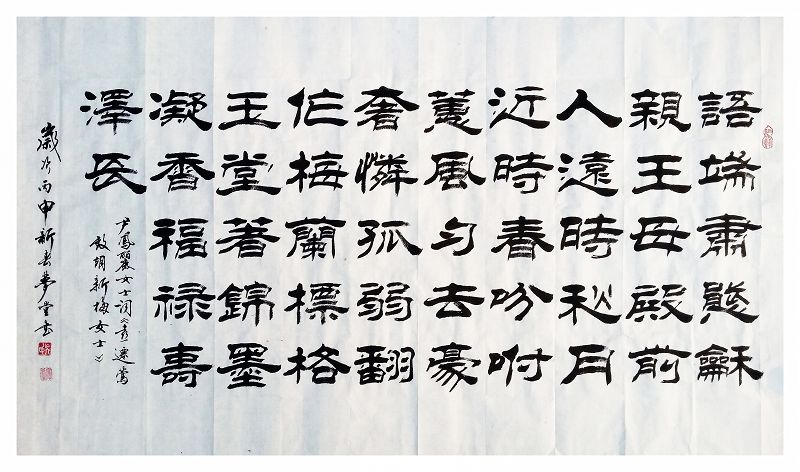 語端肅態龢
親王母殿前
人遠時秋月
近時春吩咐
蕙風勻去豪
奢憐孤弱翻
作梅蘭標格
玉堂著錦墨
凝香福禄壽
澤長
尹鳳麗女士词《喜遷鶯
致胡新梅女士》
歲次丙申新春夢堂书